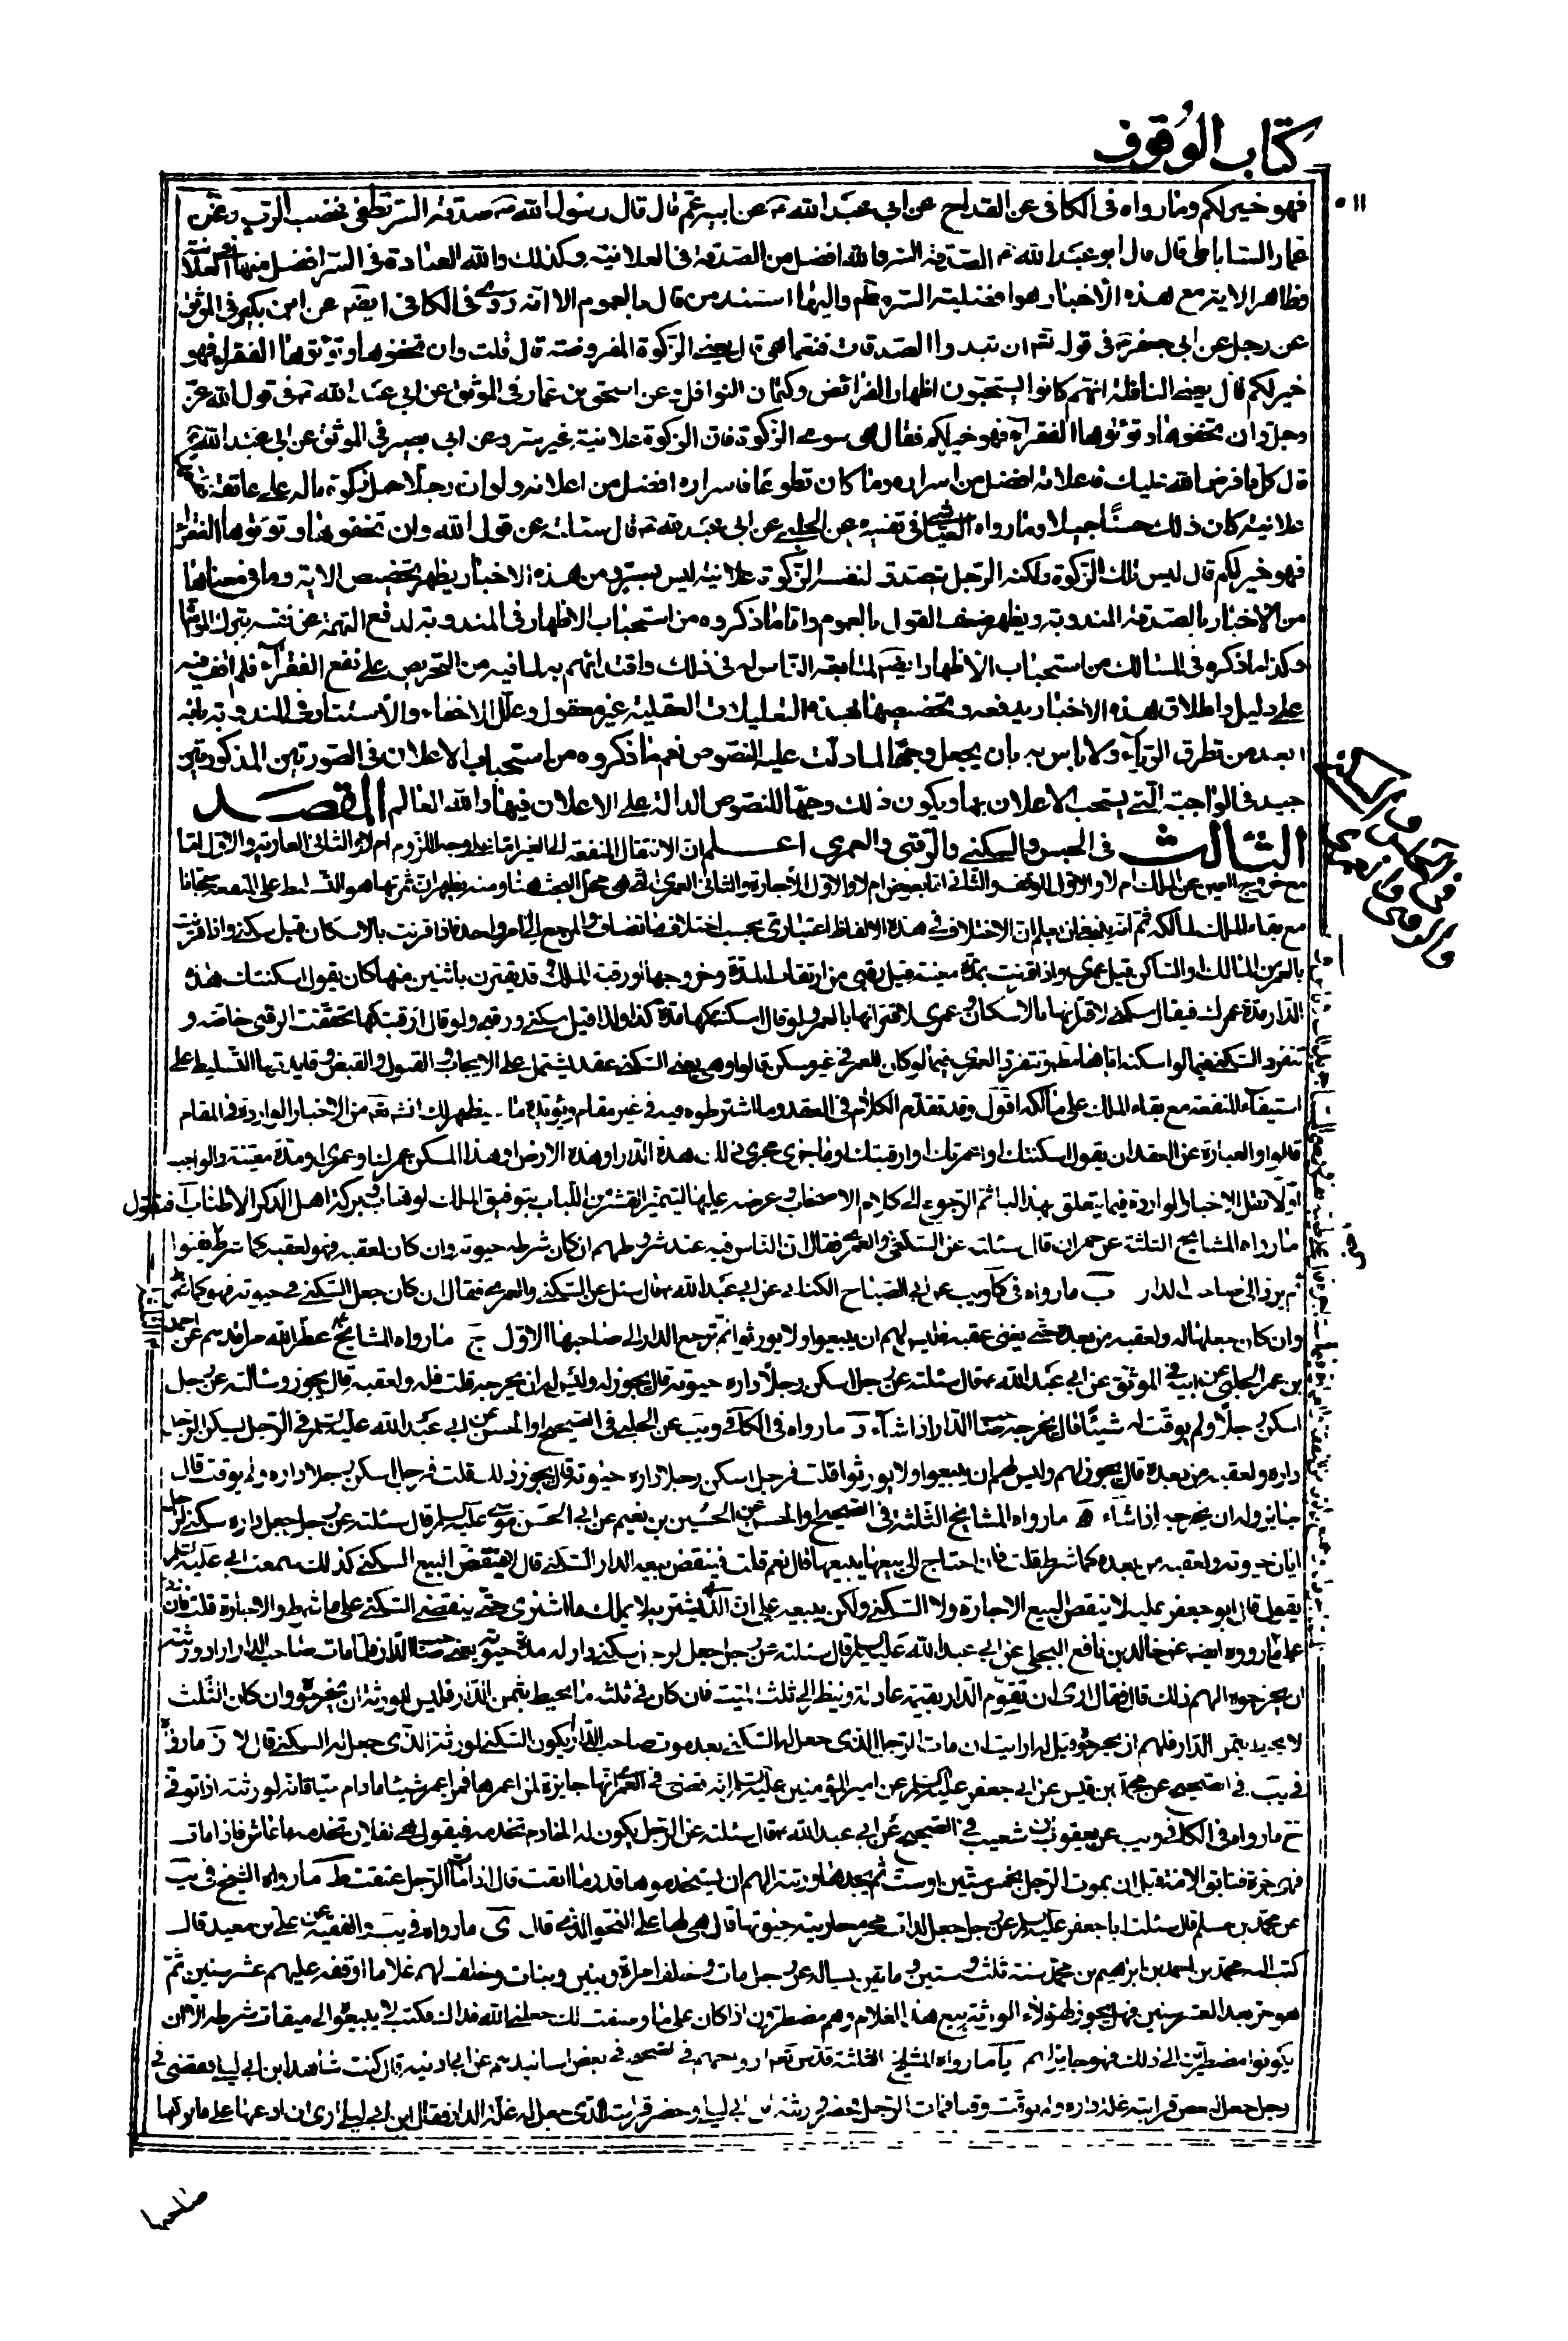 كتاب الوقوف
فهو خير لكم وما رواه فى الكافى عن القداح عن ابى عبد الله ع عن ابيه ع قال قال رسول الله ص صدقة السر تطفئ غضب الرب وعن
عمار الساباطى قال قال ابو عبد الله ع الصدقة والله فى السر افضل من الصدقة فى العلانية وكذلك والله العبادة فى السر افضل منها فى العلانية
فظاهر الاية مع هذه الاخبار هو افضلية السر مطلقا واليها استند من قال بالعموم الا انه روى فى الكافى ايضا عن ابن بكير فى الموثق
عن رجل عن ابى جعفر ع فى قوله تعالى ان تبدوا الصدقات فنعما هى قال يعنى الزكوة المفروضة قال قلت وان تخفوها وتؤتوها الفقراء فهو
خير لكم قال يعنى النافلة انهم كانوا يستحبون اظهار الفرائض وكتمان النوافل وعن اسحق بن عمار فى الموثق عن ابى عبد الله ع فى قول الله عز
وجل وان تخفوها وتؤتوها الفقراء فهو خير لكم فقال هى سوى الزكوة فان الزكوة علانية غير سر وعن ابى بصير فى الموثق عن ابى عبد الله ع
قال كل ما فرض الله عليك فاعلانه افضل من اسراره وما كان تطوعا فاسراره افضل من اعلانه ولو ان رجلا حمل زكوة ماله على عاتقه
علانية كان ذلك حسنا جميلا وما رواه العياشى فى تفسيره عن الحلبى عن ابى عبد الله ع قال سئلته عن قول الله وان تخفوها وتؤتوها الفقراء
فهو خير لكم قال ليس ذلك الزكوة ولكنه الرجل يتصدق لنفسه الزكوة علانية ليس بسر ومن هذه الاخبار يظهر تخصيص الاية وما فى معناها
من الاخبار بالصدقة المندوبة ويظهر ضعف القول بالعموم واما ما ذكروه من استحباب الاظهار فى المندوبة لدفع التهمة عن نفسه بترك المواساة
وكذا ما ذكره فى المسالك من استحباب الاظهار ايضا لمتابعة الناس له فى ذلك واقتدائهم به لما فيه من التحريص على نفع الفقراء فلم اقف فيه
على دليل واطلاق هذه الاخبار يدفعه وتخصيصها بهذه التعليلات العقلية غير معقول وعلل الاخفاء والاستتار فى المندوبة بانه
ابعد من تطرق الرياء ولا باس به بان يجعل وجها لما دلت عليه النصوص نعم ما ذكروه من استحباب الاعلان فى الصورتين المذكورتين
جيد فى الواجبة التى يستحب الاعلان بها ويكون ذلك وجها للنصوص الدالة على الاعلان فيها والله العالم المقصد
الثالث فى الحبس والسكنى والرقبى والعمرى اعلم ان الانتقال المنفعة الى الغير اما على وجه اللزوم ام لا والثانى العارية والاول اما
مع خروج العين عن الملك ام لا والاول الوقف والثانى اما بعوض ام لا والاول الاجارة والثانى العمرى التى هى محل البحث هنا ومنه يظهر ان ثمرتها هو التسلط على المنفعة مجانا
مع بقاء الملك لمالكه ثم انه ينبغى ان يعلم ان الاختلاف فى هذه الالفاظ اعتبارى بحسب اختلاف ما تضاف والمرجع الى امر واحد فاذا اقرنت بالاسكان قيل سكنى واذا اقرنت
بالعمر من المالك او الساكن قيل عمرى واذا قرنت بمدة معينة قيل رقبى من ارتقاب المدة وخروجها او رقبة الملك وقد يقترن باثنين منها كان يقول اسكنتك هذه
الدار مدة عمرك فيقال سكنى لاقترانها بالاسكان وعمرى لاقترانها بالعمر ولو قال اسكنتكها مدة كذا وكذا قيل سكنى ورقبى ولو قال ارقبتكها تحققت الرقبى خاصة و
تنفرد السكنى فيما لو اسكنه اياها مطلقا وتنفرد العمرى فيما لو كان العمر فى غير مسكن قالوا وهى يعنى السكنى عقد يشتمل على الايجاب والقبول والقبض وفايدتها التسليط على
استيفاء المنفعة مع بقاء الملك على مالكه اقول وقد تقدم الكلام فى العقد وما اشترطوه فيه فى غير مقام ويؤيده ما يظهر لك انشاء الله من الاخبار الواردة فى المقام
قالوا والعبارة عن العقد ان يقول اسكنتك او اعمرتك او ارقبتك او ما جرى مجرى ذلك هذه الدار او هذه الارض او هذا المسكن عمرك او عمرى او مدة معينة والواجب
اولا نقل الاخبار الواردة فيما يتعلق بهذا الباب ثم الرجوع الى كلام الاصحاب وعرضه عليها ليتميز القشر من اللباب بتوفيق الملك الوهاب وبركة اهل الذكر الاطناب فنقول
ا ما رواه المشايخ الثلثة عن حمران قال سئلته عن السكنى والعمرى فقال ان الناس فيه عند شروطهم ان كان شرطه حيوته وان كان لعقبه فهو لعقبه كما شرط حتى يفنوا
ثم يرد الى صاحب الدار ب ما رواه فى كا ويب عن ابى الصباح الكنانى عن ابى عبد الله ع قال سئل عن السكنى والعمرى فقال ان كان جعل السكنى فى حيوته فهو كما شرط
وان كان جعلها له ولعقبه من بعده حتى يفنى عقبه فليس لهم ان يبيعوا ولا يورثوا ثم ترجع الدار الى صاحبها الاول ج ما رواه المشايخ عطر الله مراقدهم عن احمد
بن عمر الحلبى عن ابيه فى الموثق عن ابى عبد الله ع قال سئلته عن رجل اسكن رجلا داره حيوته قال يجوز له وليس له ان يخرجه قلت فله ولعقبه قال يجوز وسالته عن رجل
اسكن رجلا ولم يوقت له شيئا قال يخرجه صاحب الدار اذا شاء د ما رواه فى الكافى ويب عن الحلبى فى الصحيح او الحسن عن ابى عبد الله عليه السلم فى الرجل يسكن الرجل
داره ولعقبه من بعده قال يجوز لهم وليس لهم ان يبيعوا ولا يورثوا قلت فرجل اسكن رجلا داره حيوته قال يجوز ذلك قلت فرجل اسكن رجلا داره ولم يوقت قال
جائز وله ان يخرجه اذا شاء ه ما رواه المشايخ الثلثة فى الصحيح او الحسن عن الحسين بن نعيم عن ابى الحسن موسى عليه السلم قال سئلته عن رجل جعل داره سكنى لرجل
ايام حيوته ولعقبه من بعده كما شرط قلت فان احتاج الى بيعها يبيعها قال نعم قلت فينقض بيعه الدار السكنى قال لا ينقض البيع السكنى كذلك سمعت ابى عليه السلم
يقول قال ابو جعفر عليه لا ينقض البيع الاجارة ولا السكنى ولكن يبيعه على ان الذى يشتريه لا يملك ما اشترى حتى ينقضى السكنى على ما شرط والاجارة قلت فان
ما رووه ايضا عن خالد بن نافع البجلى عن ابى عبد الله عليه السلم قال سئلته عن رجل جعل لرجل سكنى دار له مدة حيوته يعنى صاحب الدار فلما مات صاحب الدار اراد ورثته
ان يخرجوه الهم ذلك قال فقال ارى ان تقوم الدار بقيمة عادلة وينظر الى ثلث الميت فان كان فى ثلثه ما يحيط بثمن الدار فليس للورثة ان يخرجوه وان كان الثلث
لا يحيط بثمن الدار فلهم ان يخرجوه قيل له ارايت ان مات الرجل الذى جعل له السكنى بعد موت صاحب الدار يكون السكنى لورثة الذى جعل له السكنى قال لا ز ما رواه
فى يب فى الصحيح عن محمد بن قيس عن ابى جعفر عليه السلم عن امير المؤمنين عليه السلم انه قضى فى العمرى انها جايزة لمن اعمرها فمن اعمر شيئا ما دام حيا فانه لورثته اذا توفى
ح ما رواه فى الكافى ويب عن يعقوب بن شعيب فى الصحيح عن ابى عبد الله ع قال سئلته عن الرجل يكون له الخادم تخدمه فيقول هى لفلان تخدمه ما عاش فاذا مات
فهى حرة فتابق الامة قبل ان يموت الرجل بخمس سنين او ستة ثم يجدها ورثته الهم ان يستخدموها قدر ما ابقت قال اذا مات الرجل عتقت ط ما رواه الشيخ فى يب
عن محمد بن مسلم قال سئلت ابا جعفر عليه السلم عن رجل جعل لذات محرم جاريته حيوتها قال هى لها على النحو الذى قال ى ما رواه فى يب والفقيه عن على بن معبد قال
كتب اليه محمد بن احمد بن ابراهيم بن محمد سنة ثلث وستين وماتين يساله عن رجل مات وخلف امراة وبنين وبنات وخلف لهم غلاما اوقفه عليهم عشر سنين ثم
هو حر بعد العشر سنين فهل يجوز لهؤلاء الورثة بيع هذا الغلام وهم مضطرون اذا كان على ما وصفت لك جعلنى الله فداك فكتب لا يبيعوه الى ميقات شرطه الا ان
يكونوا مضطرين الى ذلك فهو جايز لهم يا ما رواه المشايخ الثلثة قدس الله ارواحهم فى الصحيح فى بعض اسانيدهم عن ابن اذينة قال كنت شاهدا ابن ابى ليلى وقضى فى
رجل جعل لبعض قرابته غلة داره ولم يوقت وقتا فمات الرجل فحضر ورثته ابن ابى ليلى وحضر قرابته الذى جعل له غلة الدار فقال ابن ابى ليلى ارى ان ادعها على ما تركها
صاحبها